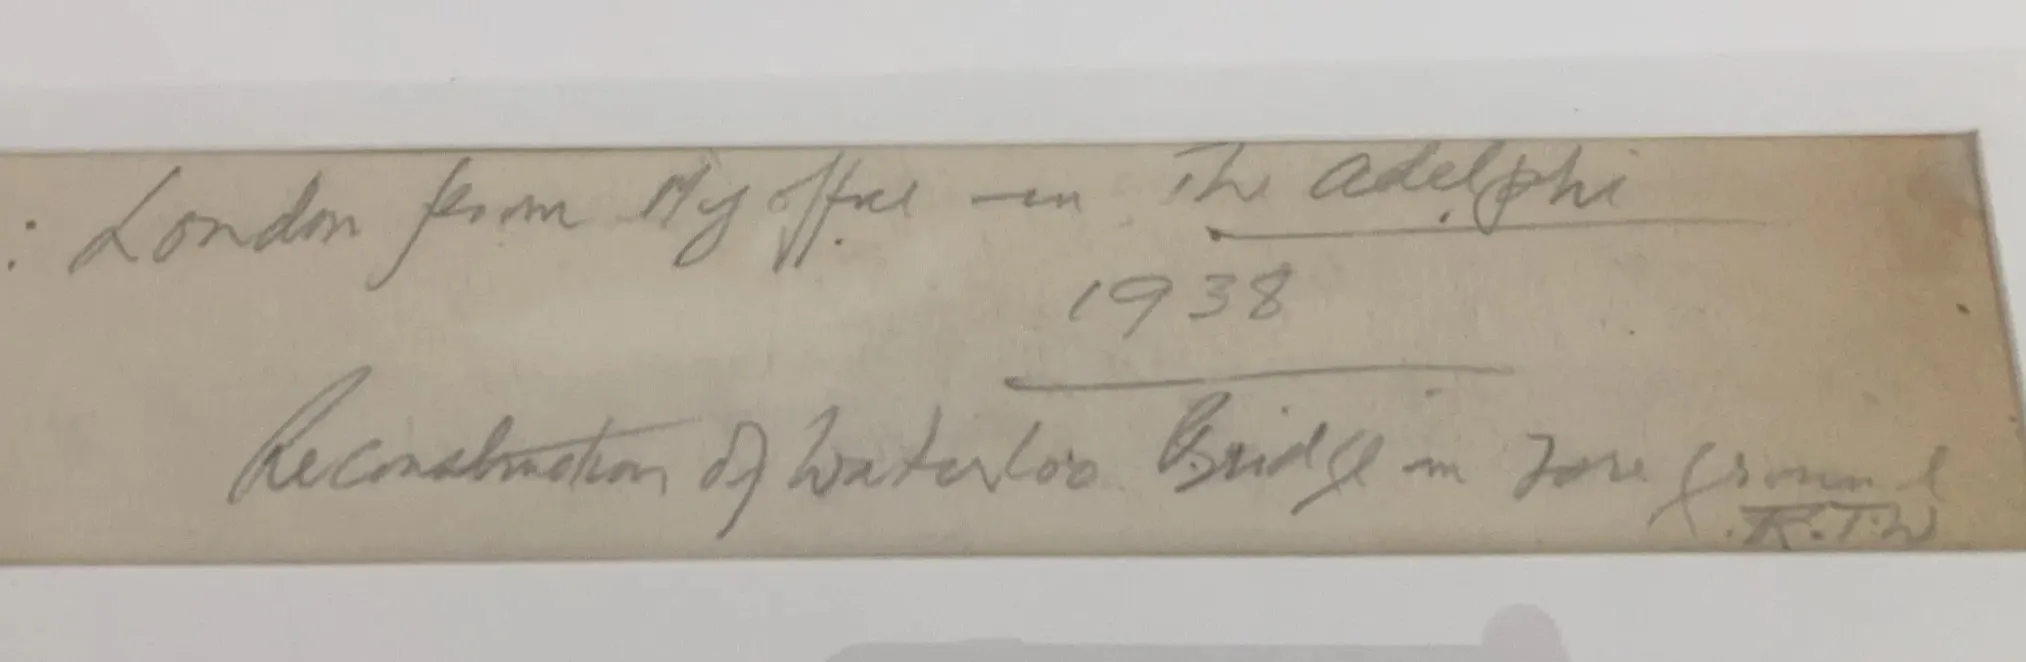 : London from My office in The Adelphi
1938
Reconstruction of Waterloo Bridge in Fore ground
R.T.W